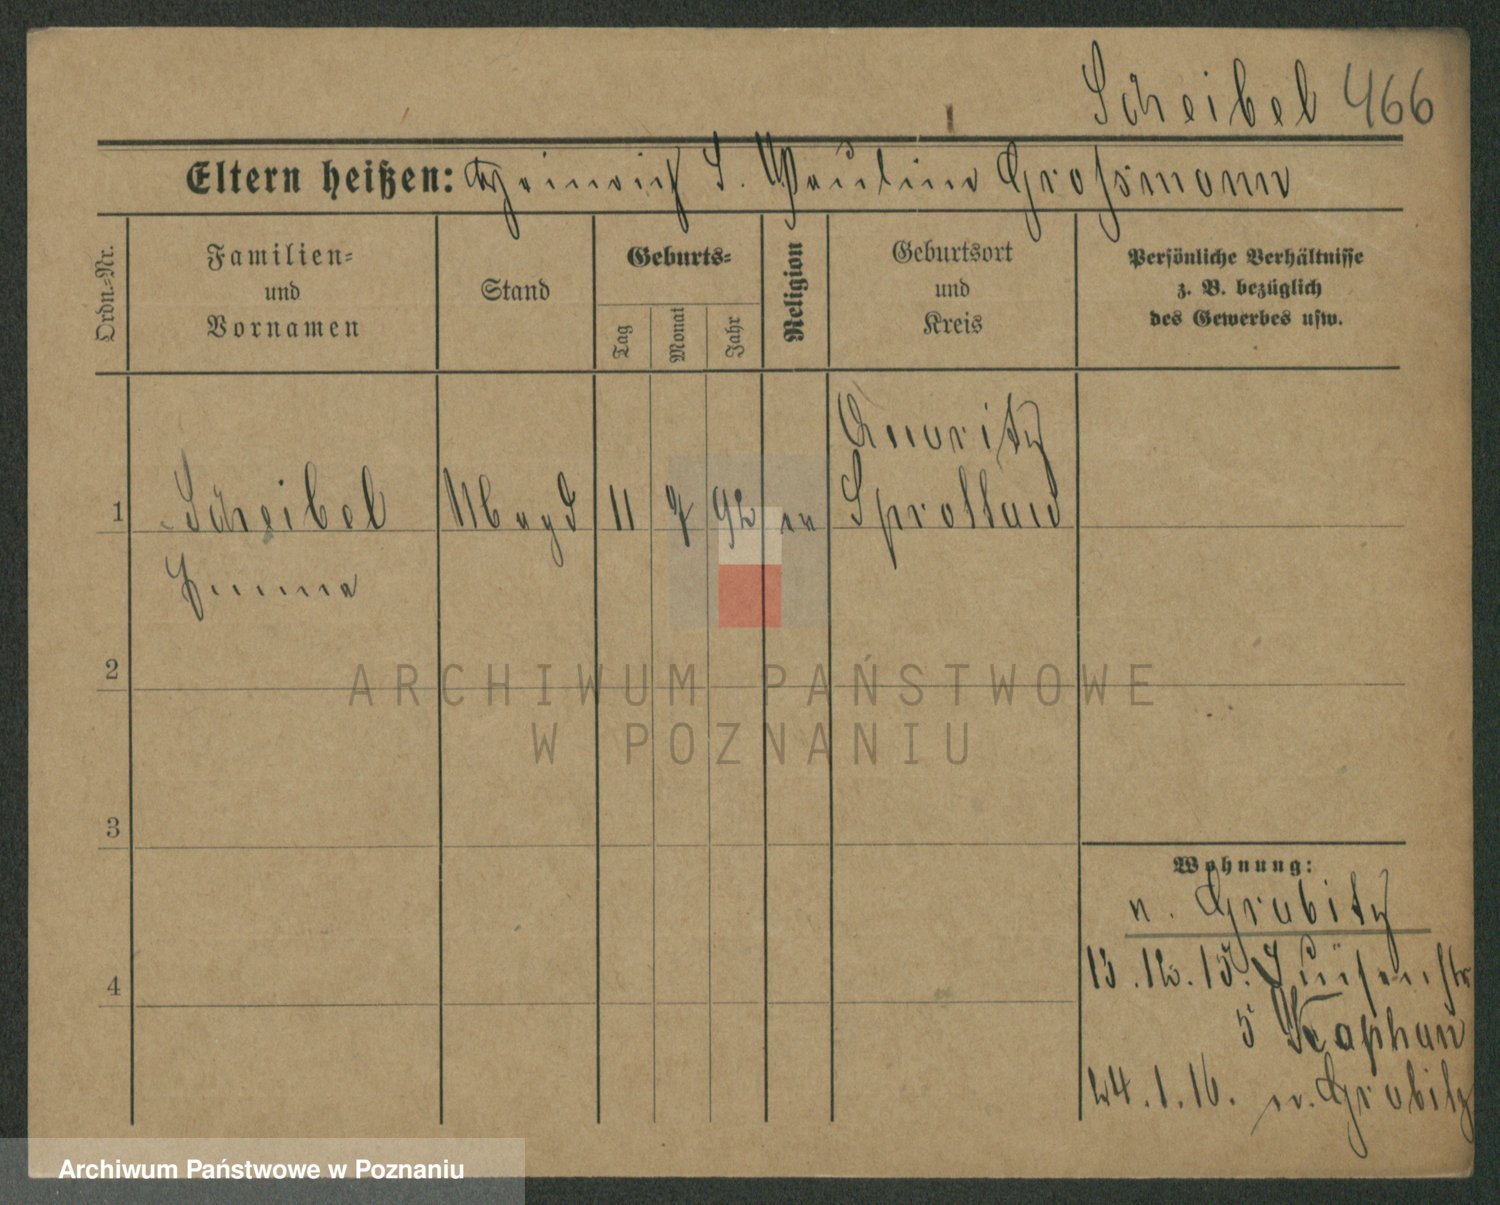 Scheibel 466
Eltern heißen: Heinrich S. Pauline Großmann
Ordn.-Nr.
Familien-
und
Vornamen
Stand
Geburts-
Tag
Monat
Jahr
Religion
Geburtsort
und
Kreis
Persönliche Verhältnisse
z. B. bezüglich
des Gewerbes usw.
1
Scheibel
Emma
Magd
11
92
ev
Sprottau
2
3
4
Wohnung:
n. Grabitz
12.15.
5 Kaphan
24.1.16. n. Grabitz
ARCHIWUM PAŃSTWOWE
W POZNANIU
Archiwum Państwowe w Poznaniu